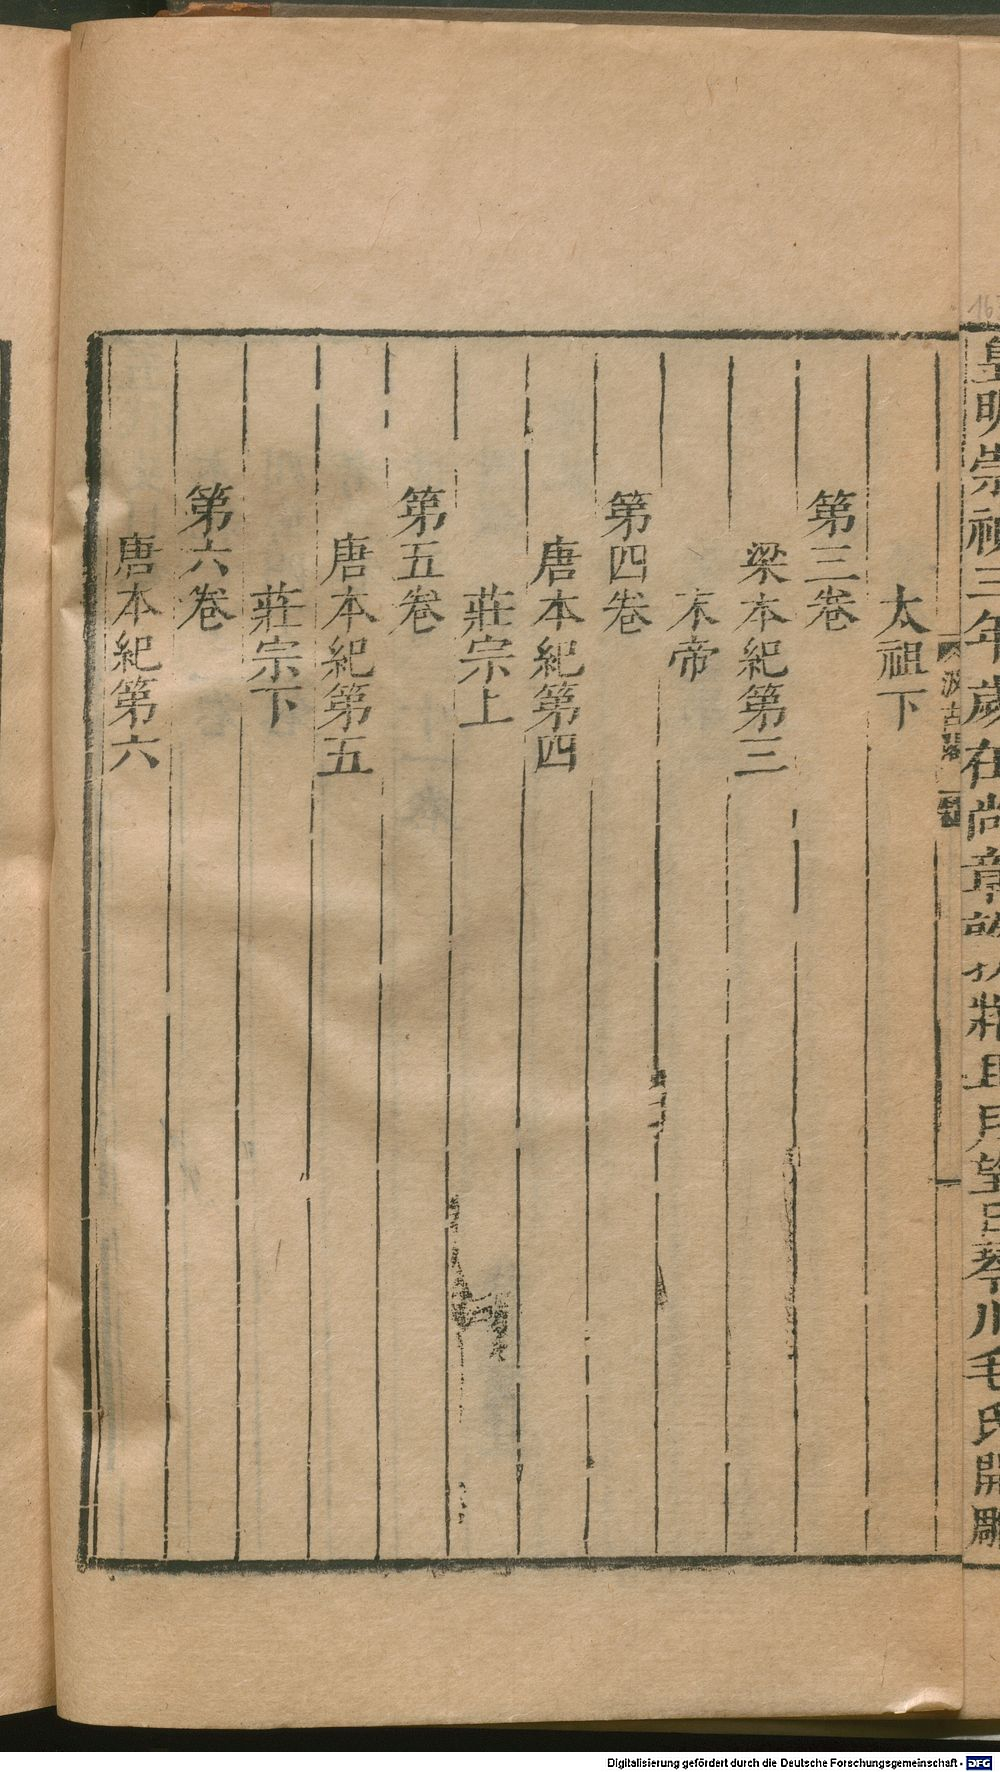 皇明崇禎三年歲在尚章
月望日琴川毛氏開雕
汲古閣
太祖下
第三卷
梁本紀第三
末帝
第四卷
唐本紀第四
莊宗上
第五卷
唐本紀第五
莊宗下
第六卷
唐本紀第六
Digitalisierung gefördert durch die Deutsche Forschungsgemeinschaft - DFG